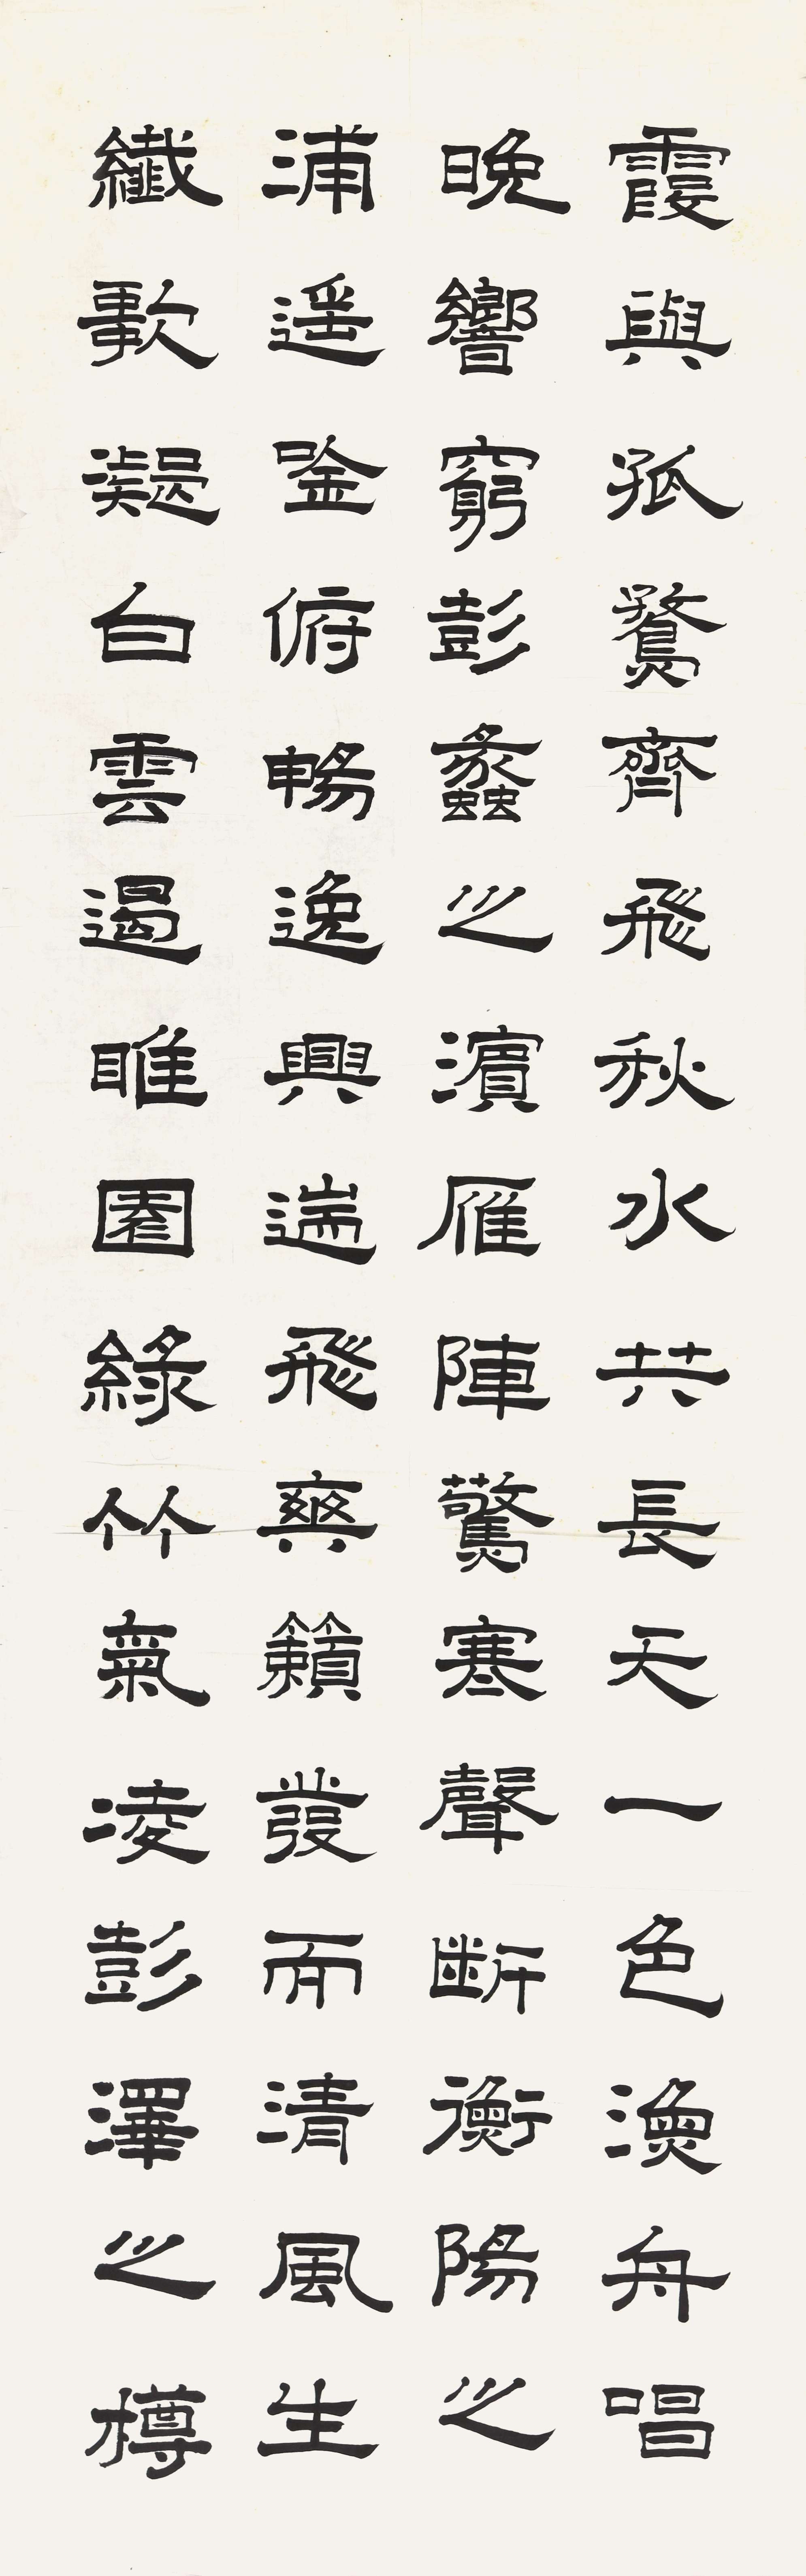 霞與孤鶩齊飛秋水共長天一色漁舟唱
晚響窮彭蠡之濱雁陣驚寒聲斷衡陽之
浦遥唫俯暢逸興遄飛爽籟發而清風生
纖歌凝白雲遏睢園綠竹氣凌彭澤之樽